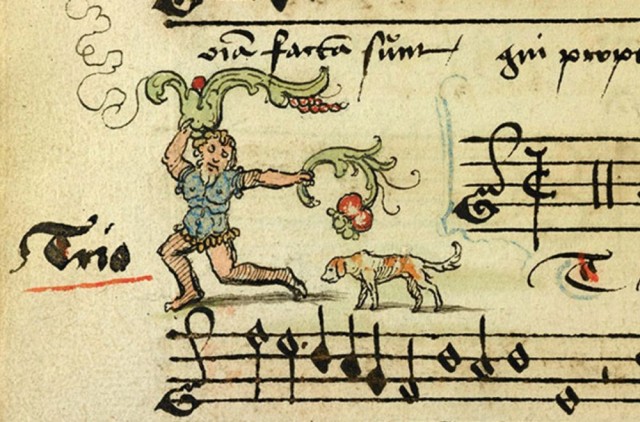 oīa facta sunt qui prope
Trio
T